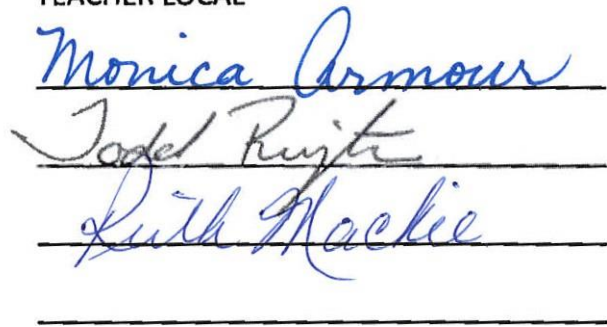 TEACHER LOCAL
Monica Armour
Todd Ruijter
Ruth Mackie